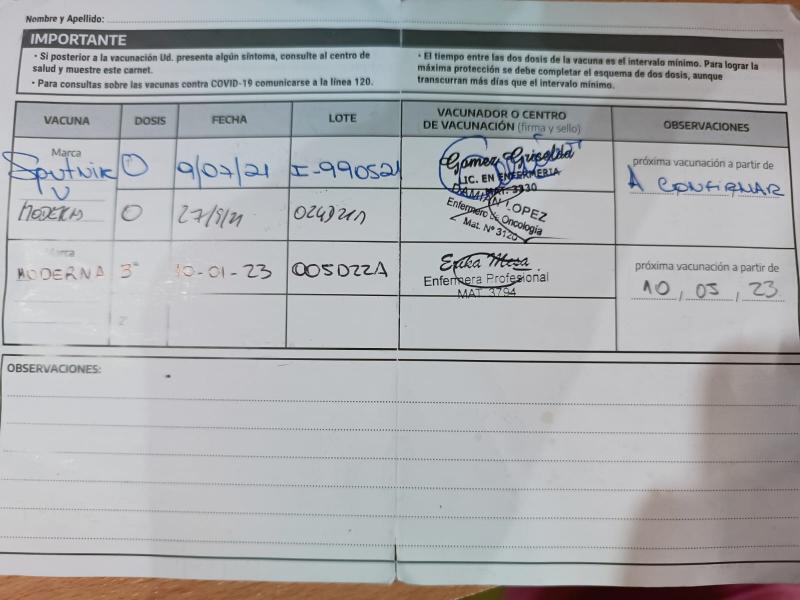 Nombre y Apellido:
IMPORTANTE
• Si posterior a la vacunación Ud. presenta algún síntoma, consulte al centro de
salud y muestre este carnet.
• Para consultas sobre las vacunas contra COVID-19 comunicarse a la línea 120.
• El tiempo entre las dos dosis de la vacuna es el intervalo mínimo. Para lograr la
máxima protección se debe completar el esquema de dos dosis, aunque
transcurran más días que el intervalo mínimo.
VACUNA DOSIS FECHA LOTE VACUNADOR O CENTRO
DE VACUNACIÓN (firma y sello) OBSERVACIONES
Marca
Sputnik
V
0 9/07/21 I-990521
Gomez Griselda
LIC. EN ENFERMERIA
MAT. 3330
próxima vacunación a partir de
A CONFIRMAR
0
LOPEZ
Enfermero de Oncología
Mat. Nº 3120
Marca
MODERNA 3ª 10-01-23 005D22A
Erika Mesa
Enfermera Profesional
MAT. 3794
próxima vacunación a partir de
10, 05, 23
OBSERVACIONES: